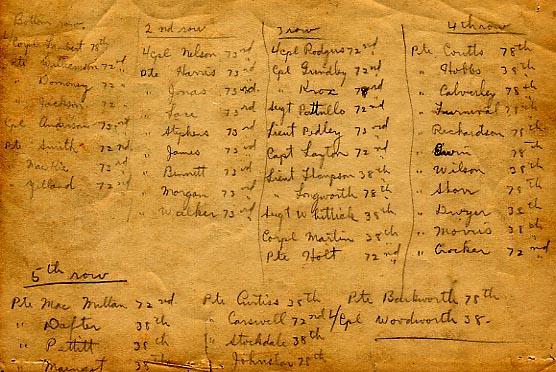 Bottom row
Lambert 78th
Pte Williamson 72nd
" Domoney 72nd
" Jackson 72
Cpl Anderson 73rd
Pte Smith 72nd
" Mackie 73rd
" Gelland 72nd
2nd row
L/Cpl Nelson 73rd
Pte Harris 73rd
" Jonas 73rd
" 73rd
" Stephens 73rd
" James 73rd
" Bennitt 73rd
" Morgan 73rd
" Walker 73rd
3 row
L/Cpl Rodgers 72nd
Cpl Grundby 72nd
" Knox 78rd
Sgt Pattullo 72nd
Lieut Pedley 73rd
Capt Layton 72nd
Lieut Thompson 38th
" Longworth 78th
Sgt Whittick 38th
Corpl Martin 38th
Pte Holt 72nd
4th row
Pte Coutts 78th
" Hobbs 38th
" Calverley 78th
" Furnival 78th
" Richardson 78th
" Erwin 78th
" Wilson 38th
" 78th
" Dwyer 38th
" Morris 38th
" Crocker 72nd
5th row
Pte Mac Millan 72nd
" Dafter 38th
" Pettitt 38th
" 38th
Pte Curtiss 38th
" Carswell 72nd
" Stockdale 38th
" Johnston 78th
Pte Barkworth 78th
L/Cpl Woodworth 38.